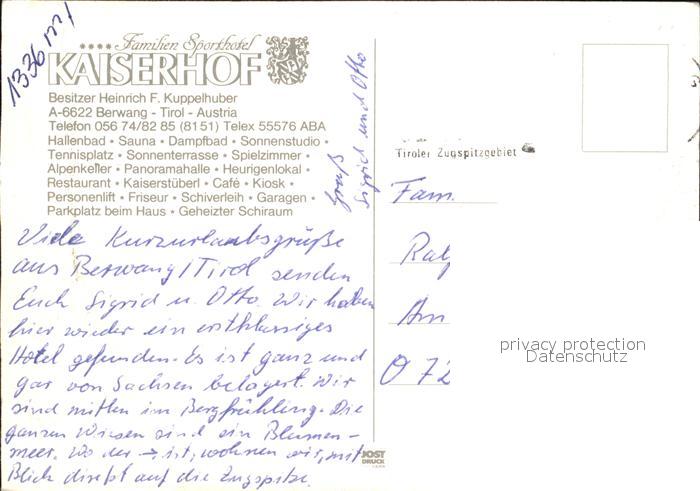 1336 m
**** Familien Sporthotel
KAISERHOF
Besitzer Heinrich F. Kuppelhuber
A-6622 Berwang - Tirol - Austria
Telefon 056 74/82 85 (81 51) Telex 55576 ABA
Hallenbad • Sauna • Dampfbad • Sonnenstudio •
Tennisplatz • Sonnenterrasse • Spielzimmer •
Alpenkeller • Panoramahalle • Heurigenlokal •
Restaurant • Kaiserstüberl • Café • Kiosk •
Personenlift • Friseur • Schiverleih • Garagen •
Parkplatz beim Haus • Geheizter Schiraum
Viele Kurzurlaubsgrüße
aus Berwang/Tirol senden
Euch Sigrid u. Otto. Wir haben
hier wieder ein erstklassiges
Hotel gefunden. Es ist ganz und
gar von Sachsen belagert. Wir
sind mitten im Bergfrühling. Die
ganzen Wiesen sind ein Blumen-
meer. Wo der → ist, wohnen wir, mit
Blick direkt auf die Zugspitze.
Gruß
Sigrid und Otto
Tiroler Zugspitzgebiet
Fam.
Ralf
Am
O 72
privacy protection
Datenschutz
JOST
DRUCK